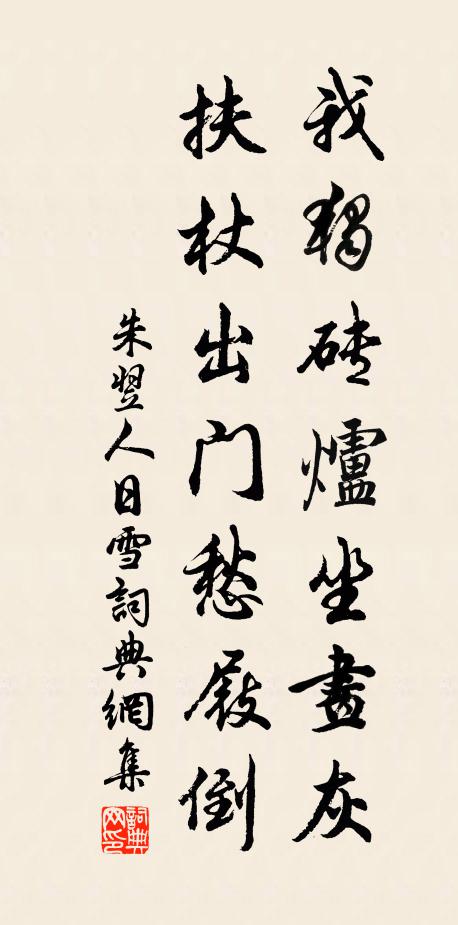 我獨砖爐坐畫灰
扶杖出門愁屐倒
朱翌人日雪詞典網集
詞典网印